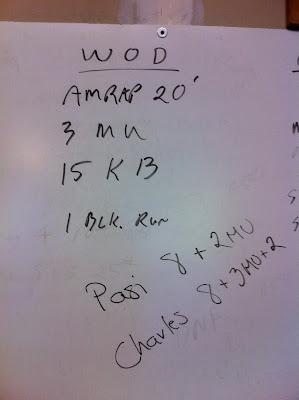 WOD
AMRAP 20'
3 MU
15 KB
1 BLK. RUN
Pasi 8 + 2MU
Charles 8+3MU+2